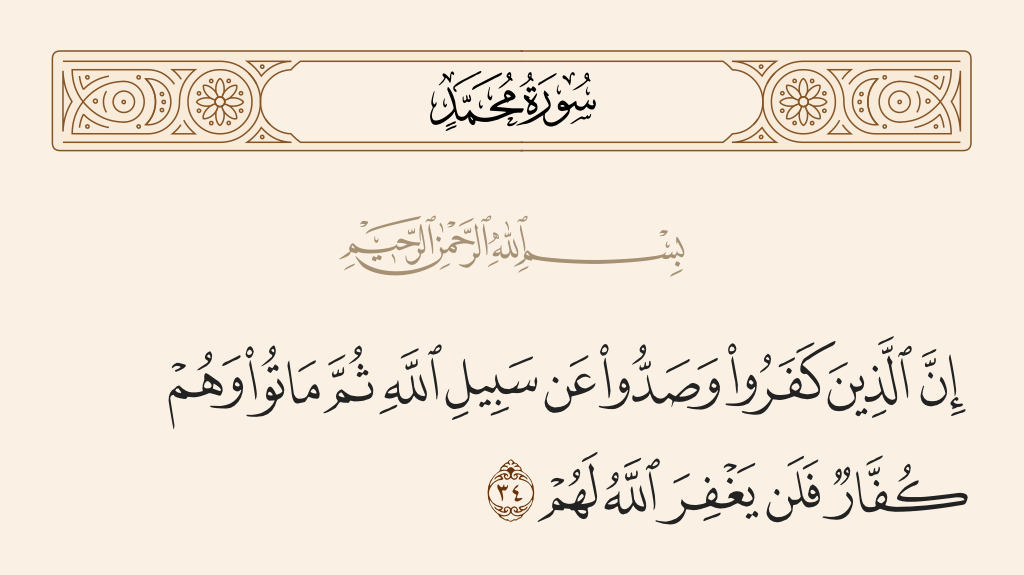 سُورَةُ مُحَمَّدٍ
بِسْمِ ٱللَّهِ ٱلرَّحْمَٰنِ ٱلرَّحِيمِ
إِنَّ ٱلَّذِينَ كَفَرُوا۟ وَصَدُّوا۟ عَن سَبِيلِ ٱللَّهِ ثُمَّ مَاتُوا۟ وَهُمْ
كُفَّارٌ فَلَن يَغْفِرَ ٱللَّهُ لَهُمْ ٣٤